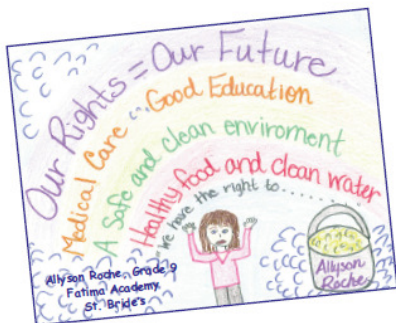 Our Rights = Our Future
Medical Care ∴ Good Education
A Safe and clean enviroment
Healthy food and clean water
we have the right to..........
Allyson Roche, Grade 9
Fatima Academy
St. Bride's
Allyson
Roche